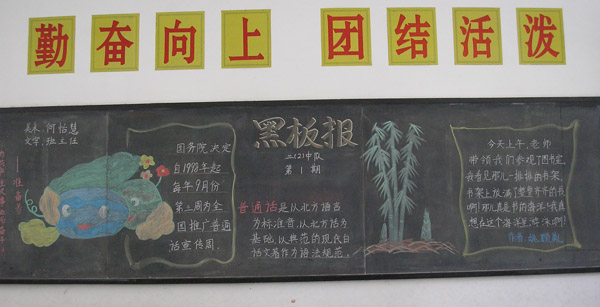 勤奋向上 团结活泼
美术:何怡慧
文字:班主任
国务院决定
自1998年起
每年9月份
第三周为全
国推广普通
话宣传周.
黑板报
二(2)中队
第1期
普通话是以北方语音
为标准音,以北方话为
基础,以典范的现代白
话文著作为语法规范.
今天上午,老师
带领我们参观了图书室,
我看见那儿一排排的书架,
书架上放满了整整齐齐的书,
啊!那儿真是书的海洋!我真
想在这个海洋里